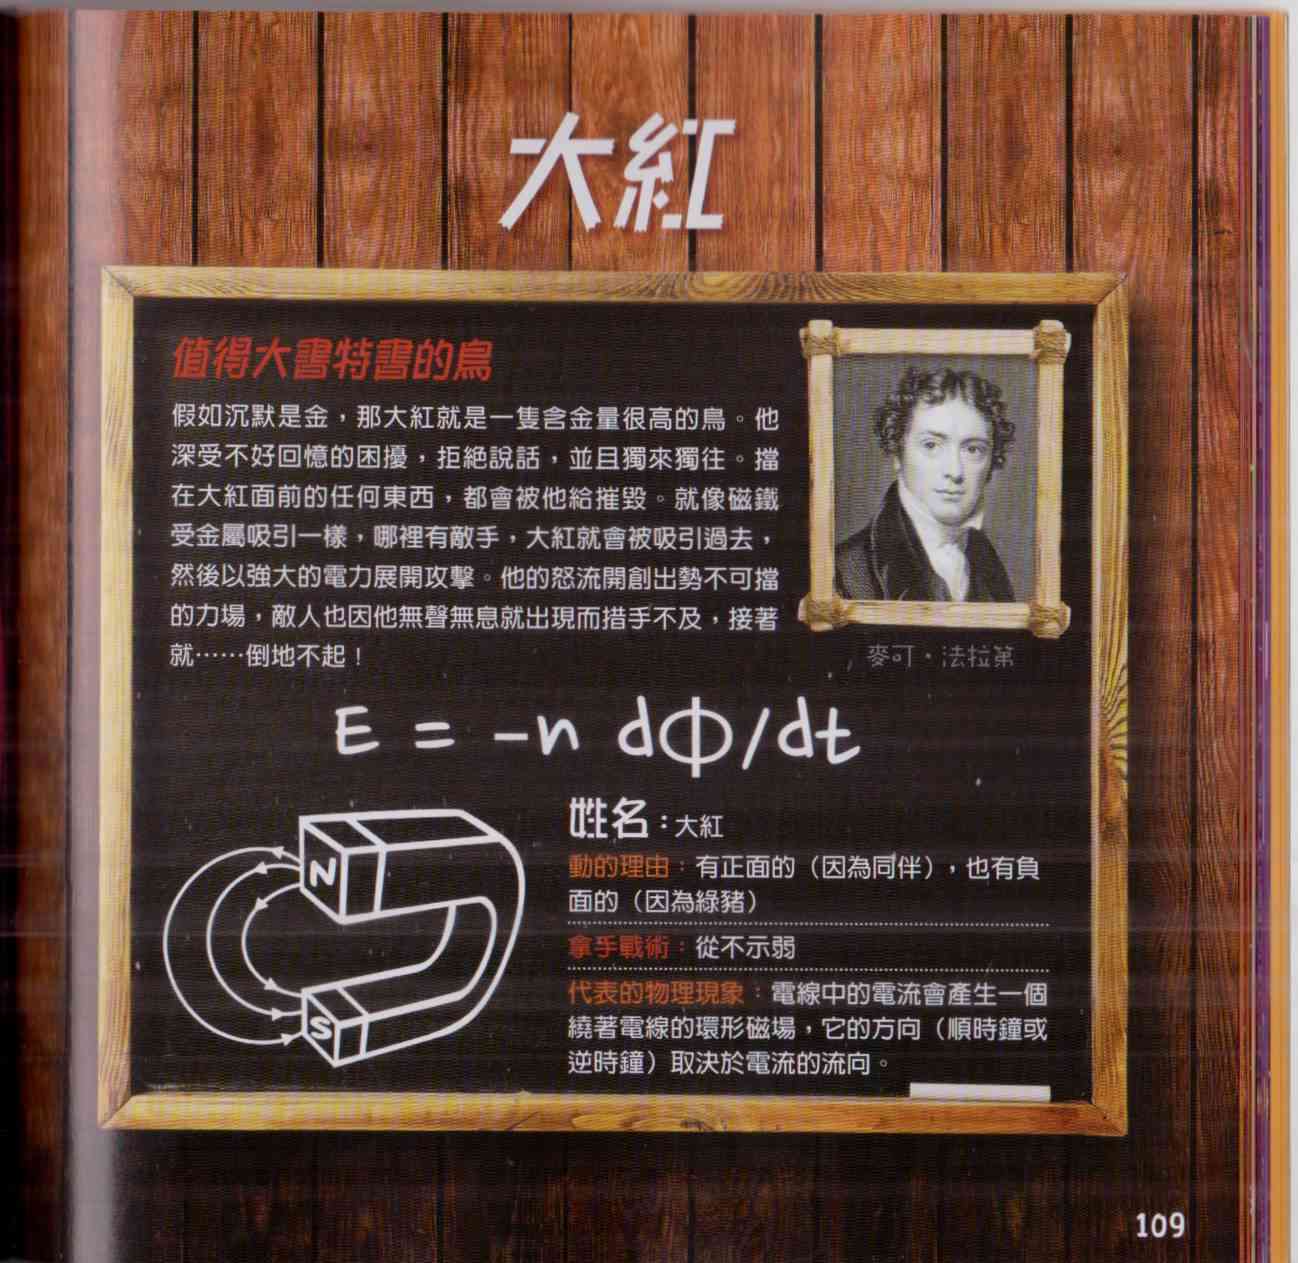 大紅
值得大書特書的鳥
假如沉默是金，那大紅就是一隻含金量很高的鳥。他
深受不好回憶的困擾，拒絕說話，並且獨來獨往。擋
在大紅面前的任何東西，都會被他給摧毀。就像磁鐵
受金屬吸引一樣，哪裡有敵手，大紅就會被吸引過去，
然後以強大的電力展開攻擊。他的怒流開創出勢不可擋
的力場，敵人也因他無聲無息就出現而措手不及，接著
就……倒地不起！
麥可・法拉第
E = -n dΦ/dt
N
S
姓名：大紅
動的理由：有正面的（因為同伴），也有負
面的（因為綠豬）
拿手戰術：從不示弱
代表的物理現象：電線中的電流會產生一個
繞著電線的環形磁場，它的方向（順時鐘或
逆時鐘）取決於電流的流向。
109